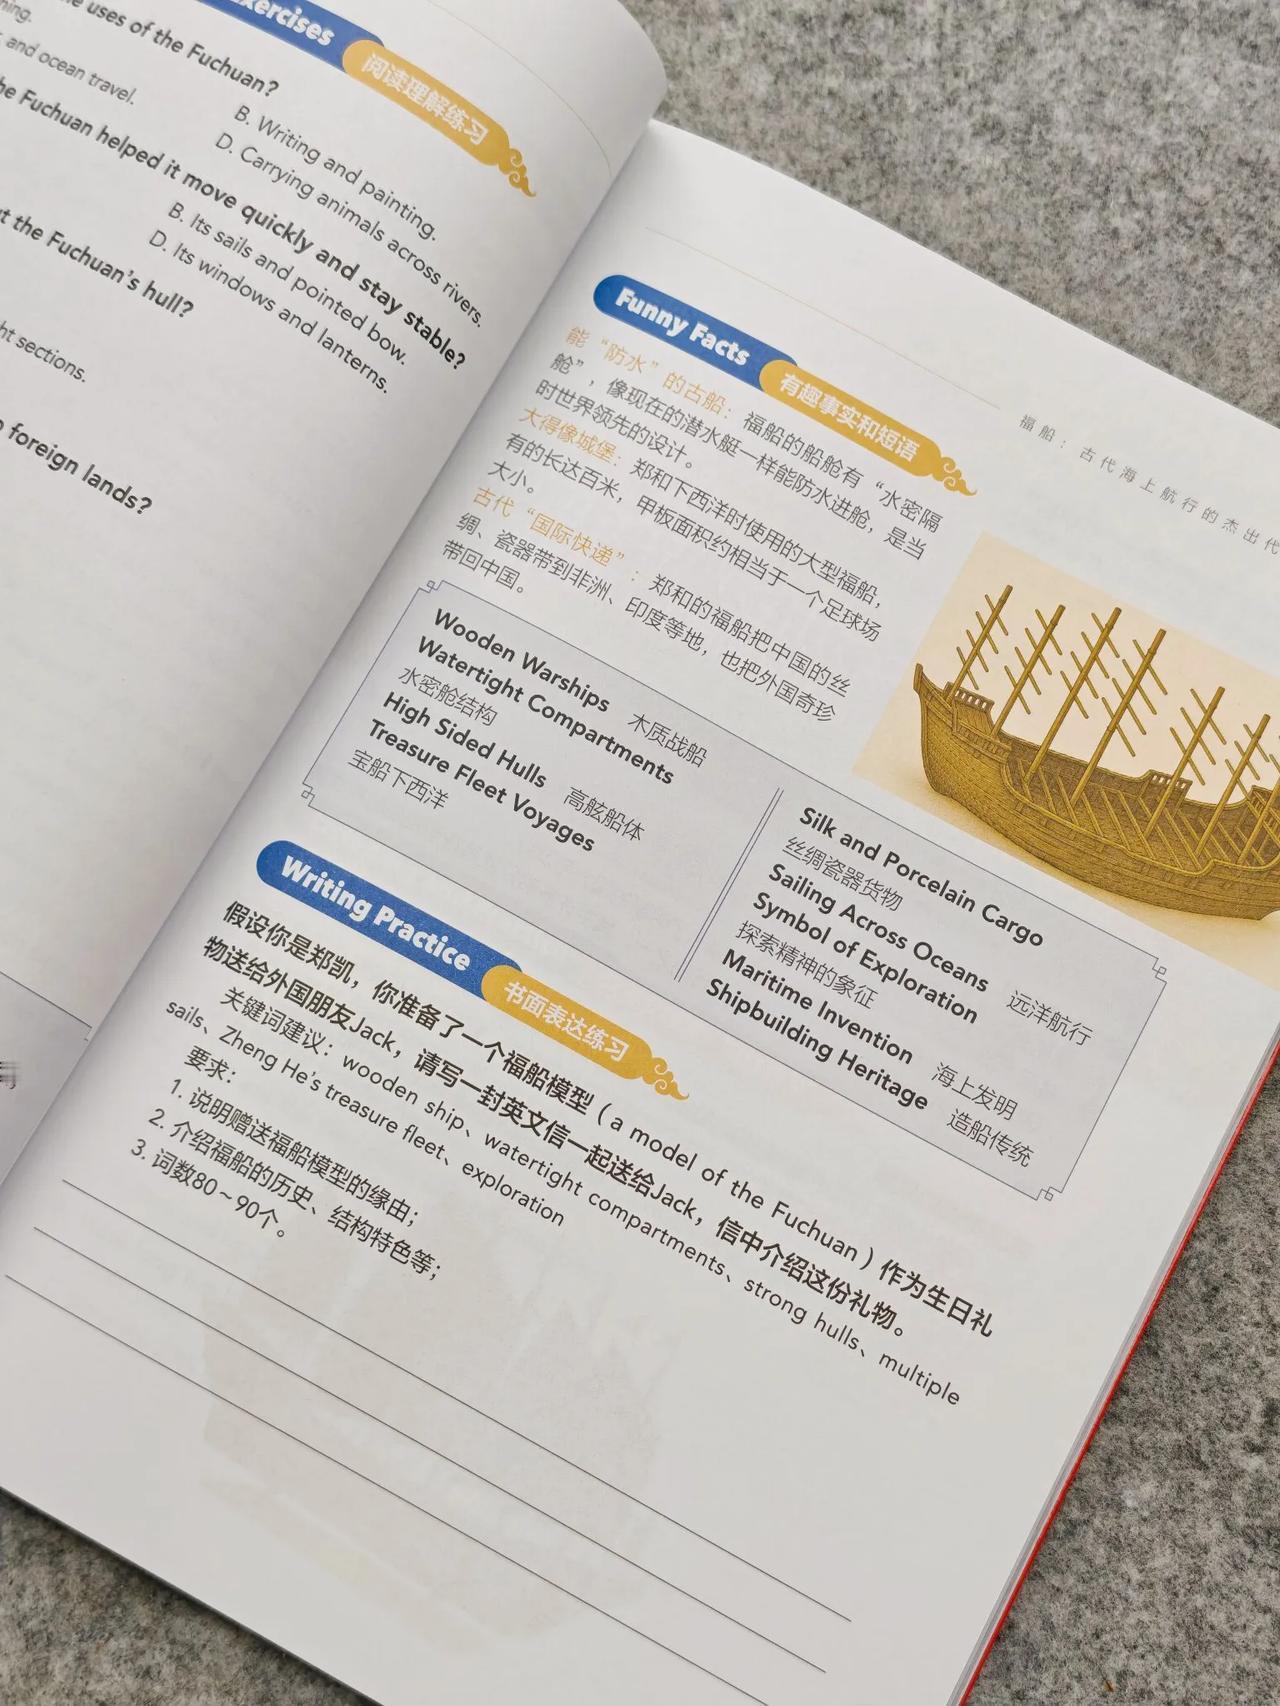 Exercises
阅读理解练习
uses of the Fuchuan?
and ocean travel.
B. Writing and painting.
D. Carrying animals across rivers.
Fuchuan helped it move quickly and stay stable?
B. Its sails and pointed bow.
D. Its windows and lanterns.
the Fuchuan's hull?
sections.
foreign lands?
福船：古代海上航行的杰出代
Funny Facts
有趣事实和短语
能“防水”的古船：福船的船舱有“水密隔
舱”，像现在的潜水艇一样能防水进舱，是当
时世界领先的设计。
大得像城堡：郑和下西洋时使用的大型福船，
有的长达百米，甲板面积约相当于一个足球场
大小。
古代“国际快递”：郑和的福船把中国的丝
绸、瓷器带到非洲、印度等地，也把外国奇珍
带回中国。
Wooden Warships 木质战船
Watertight Compartments
水密舱结构
High Sided Hulls 高舷船体
Treasure Fleet Voyages
宝船下西洋
Silk and Porcelain Cargo
丝绸瓷器货物
Sailing Across Oceans 远洋航行
Symbol of Exploration
探索精神的象征
Maritime Invention 海上发明
Shipbuilding Heritage 造船传统
Writing Practice
书面表达练习
假设你是郑凯，你准备了一个福船模型（a model of the Fuchuan）作为生日礼
物送给外国朋友Jack，请写一封英文信一起送给Jack，信中介绍这份礼物。
关键词建议：wooden ship、watertight compartments、strong hulls、multiple
sails、Zheng He's treasure fleet、exploration
要求：
1. 说明赠送福船模型的缘由；
2. 介绍福船的历史、结构特色等；
3. 词数80～90个。